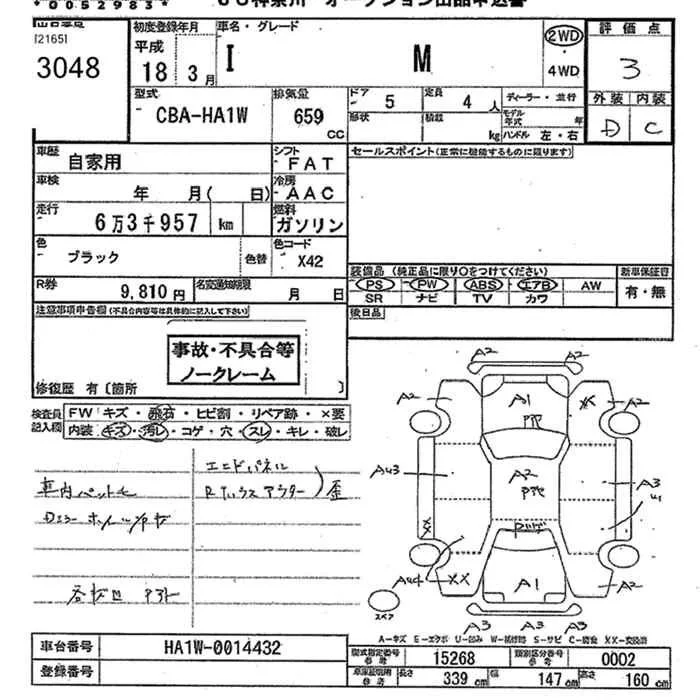 *0052983*
[2165]
3048
初度登録年月
平成
18年3月
車名・グレード
I M
2WD
4WD
評価点
3
外装 内装
D C
型式
CBA-HA1W
排気量
659
CC
ドア
5
定員
4人
ディーラー・並行
形状
積載
kg
モデル年式
年
ハンドル 左・右
車歴
自家用
シフト
FAT
セールスポイント(正常に機能するものに限ります)
車検
年 月( 日)
冷房
AAC
走行
6万3千957 km
燃料
ガソリン
色
ブラック
色替
色コード
X42
装備品(純正品に限り○をつけてください)
新車保証書
PS PW ABS エアB AW
SR ナビ TV カワ
有・無
R券
9,810円
名変通知期限
月 日
後日品
注意事項申告欄(不具合内容等は具体的に記入して下さい)
事故・不具合等
ノークレーム
修復歴 有〔箇所 〕
検査員記入欄
FW キズ・飛石・ヒビ割・リペア跡・×要
内装・キズ・汚レ・コゲ・穴・スレ・キレ・破レ
エンドパネル
歪
A2 A2
A2 A1 XX A2
AU3 A2 A3
U1
XX
AU4 XX A1 A2
スペア
A3 A3 A3
A-キズ E-エクボ U-凹み W-補修跡 S-サビ C-腐食 XX-交換済
車台番号
HA1W-0014432
登録番号
型式指定番号
参考
15268
類別区分番号
参考
0002
車庫証明用
参考
長さ
339 cm
幅
147 cm
高さ
160 cm